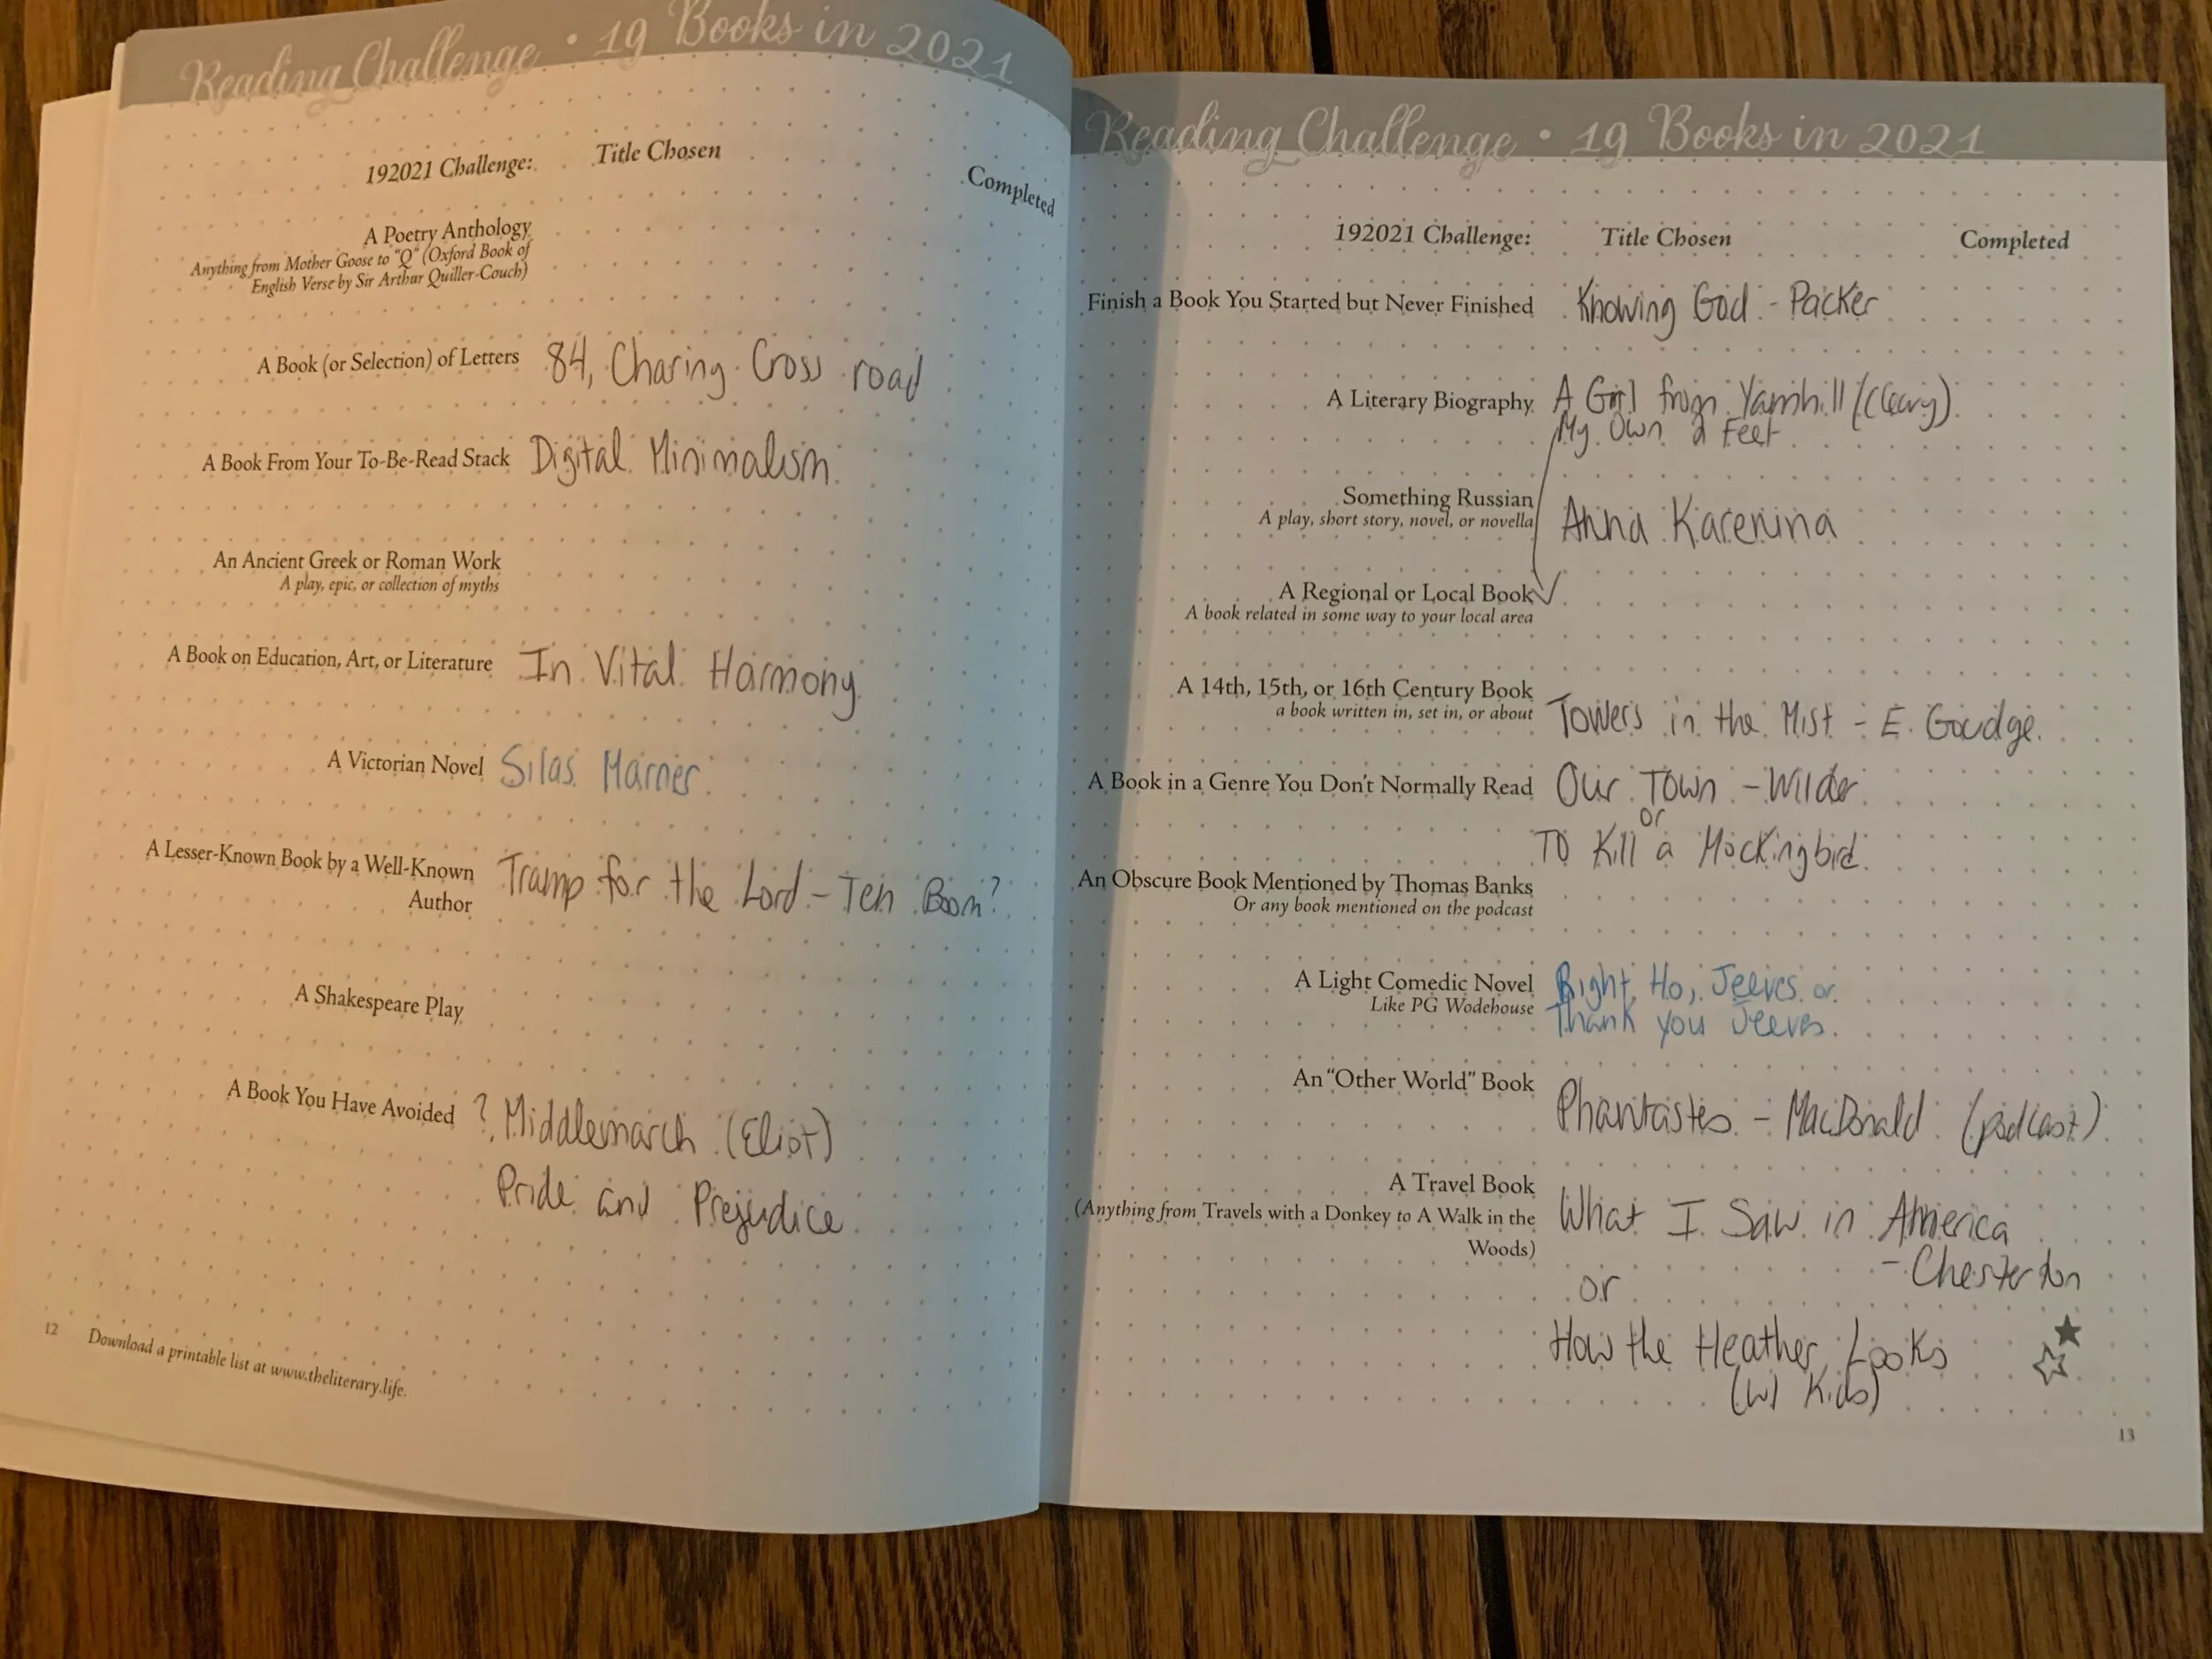 Reading Challenge • 19 Books in 2021
192021 Challenge: Title Chosen Completed
A Poetry Anthology
Anything from Mother Goose to "Q" (Oxford Book of
English Verse by Sir Arthur Quiller-Couch)
A Book (or Selection) of Letters 84, Charing Cross road
A Book From Your To-Be-Read Stack Digital Minimalism
An Ancient Greek or Roman Work
A play, epic, or collection of myths
A Book on Education, Art, or Literature In Vital Harmony
A Victorian Novel Silas Marner
A Lesser-Known Book by a Well-Known Tramp for the Lord - Ten Boom?
Author
A Shakespeare Play
A Book You Have Avoided ? Middlemarch (Eliot)
Pride and Prejudice
12 Download a printable list at www.theliterary.life.
Reading Challenge • 19 Books in 2021
192021 Challenge: Title Chosen Completed
Finish a Book You Started but Never Finished Knowing God - Packer
A Literary Biography A Girl from Yamhill/(Cleary)
My Own 2 Feet
Something Russian
A play, short story, novel, or novella Anna Karenina
A Regional or Local Book
A book related in some way to your local area
A 14th, 15th, or 16th Century Book
a book written in, set in, or about Towers in the Mist - E. Goudge
A Book in a Genre You Don't Normally Read Our Town - Wilder
or
To Kill a Mockingbird
An Obscure Book Mentioned by Thomas Banks
Or any book mentioned on the podcast
A Light Comedic Novel Right Ho, Jeeves or
Like PG Wodehouse Thank you Jeeves
An "Other World" Book Phantastes - MacDonald (podcast)
A Travel Book
(Anything from Travels with a Donkey to A Walk in the What I Saw in America
Woods) - Chesterton
or
How the Heather Looks
(w/ Kids)
13